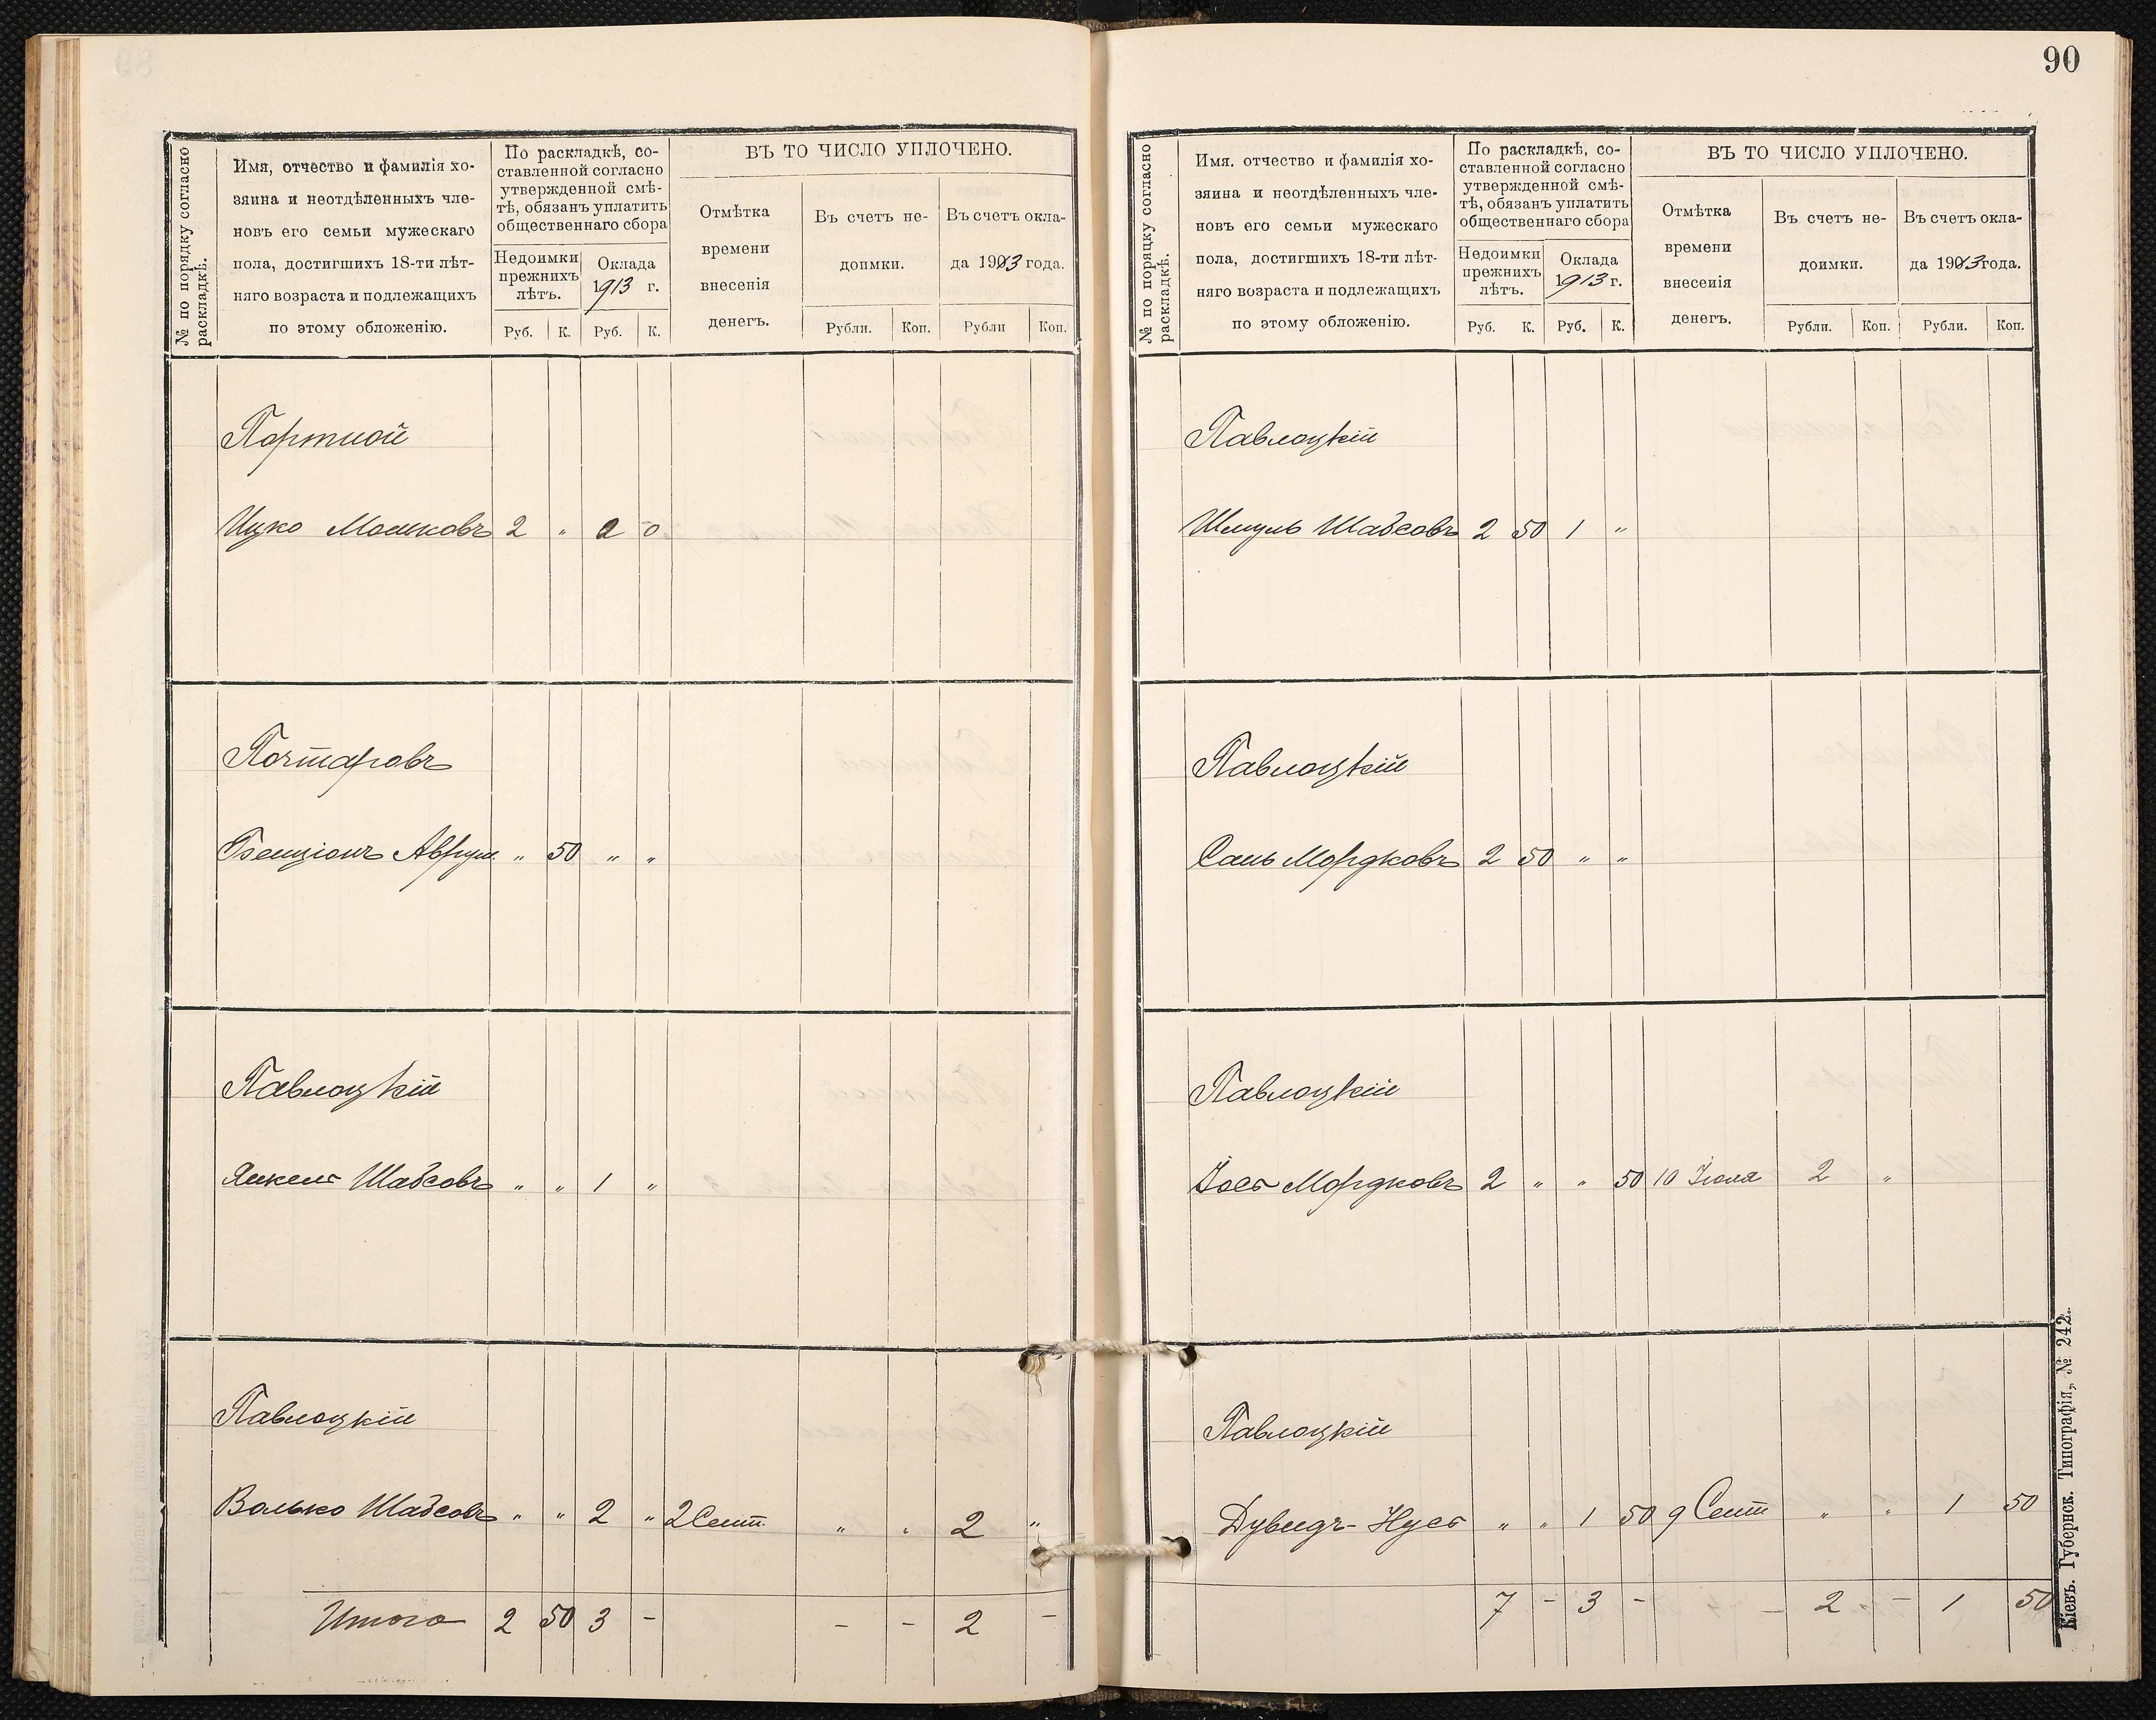 90
№ по порядку согласно раскладкѣ.
Имя, отчество и фамилія хо-
зяина и неотдѣленныхъ чле-
новъ его семьи мужескаго
пола, достигшихъ 18-ти лѣт-
няго возраста и подлежащихъ
по этому обложенію.
По раскладкѣ, со-
ставленной согласно
утвержденной смѣ-
тѣ, обязанъ уплатить
общественнаго сбора
Недоимки
прежнихъ
лѣтъ.
Оклада
1913 г.
Руб. К. Руб. К.
ВЪ ТО ЧИСЛО УПЛОЧЕНО.
Отмѣтка
времени
внесенія
денегъ.
Въ счетъ не-
доимки.
Въ счетъ окла-
да 1913 года.
Рубли. Коп. Рубли Коп.
Портной
Ицко Мошковъ 2 " 0 0
Почтаровъ
Бенціонъ Аврум. " 50 " "
Павлоцкій
Янкель Шабсовъ " " 1 "
Павлоцкій
Волько Шабсовъ " " 2 " 2 Сент. " " 2 "
Итого 2 50 3 - - - 2 -
№ по порядку согласно раскладкѣ.
Имя. отчество и фамилія хо-
зяина и неотдѣленныхъ чле-
новъ его семьи мужескаго
пола, достигшихъ 18-ти лѣт-
няго возраста и подлежащихъ
по этому обложенію.
По раскладкѣ, со-
ставленной согласно
утвержденной смѣ-
тѣ, обязанъ уплатить
общественнаго сбора
Недоимки
прежнихъ
лѣтъ.
Оклада
1913 г.
Руб. К. Руб. К.
ВЪ ТО ЧИСЛО УПЛОЧЕНО.
Отмѣтка
времени
внесенія
денегъ.
Въ счетъ не-
доимки.
Въ счетъ окла-
да 1913 года.
Рубли. Коп. Рубли. Коп.
Павлоцкій
Шмуль Шабсовъ 2 50 1 "
Павлоцкій
Сань Мордковъ 2 50 " "
Павлоцкій
Іось Мордковъ 2 " " 50 10 Іюля 2 "
Павлоцкій
Дувидъ-Нусъ " " 1 50 9 Сент " " 1 50
7 - 3 - - 2 - 1 50
Кіевъ. Губернск. Типографія, № 242.